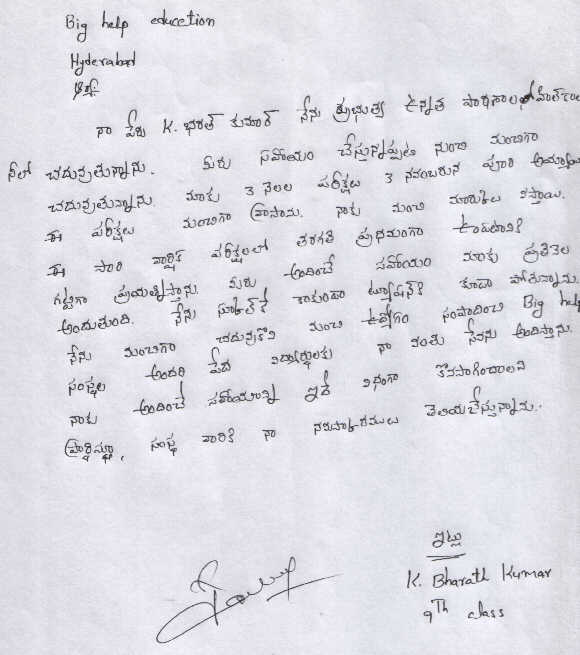 Big help eduction
Hyderabad
నా పేరు K. భరత్ కుమార్ నేను ప్రభుత్వ ఉన్నత పాఠశాల
చదువుతున్నాను. మీరు సహాయం చేస్తున్నప్పటి నుంచి మంచిగా
చదువుతున్నాను. మాకు 3 నెలల పరీక్షలు 3 నవంబరున పూర్తి
ఈ పరీక్షలు మంచిగా వ్రాసాను. నాకు మంచి మార్కులు వస్తాయి.
ఈ సారి వార్షిక పరీక్షలలో తరగతి ప్రథమంగా ఉండటానికి
గట్టిగా ప్రయత్నిస్తాను. మీరు అందించే సహాయం మాకు ప్రతినెల
అందుతుంది. నేను స్కూల్‌కే కాకుండా ట్యూషన్‌కి కూడా పోతున్నాను.
నేను మంచిగా చదువుకొని మంచి ఉద్యోగం సంపాదించి Big help
సంస్థల అందరి పేద విద్యార్థులకు నా వంతు సేవను అందిస్తాను.
నాకు అందించే సహాయాన్ని ఇదే విధంగా కొనసాగించాలని
ప్రార్థిస్తూ, సంస్థ వారికి నా నమస్కారములు తెలియచేస్తున్నాను.
ఇట్లు
K. Bharath Kumar
9Th class